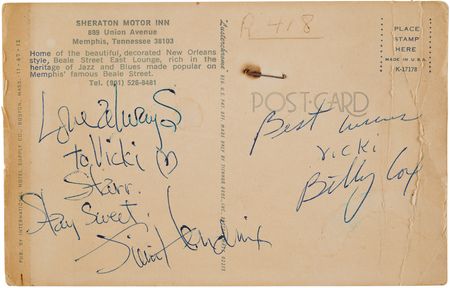 SHERATON MOTOR INN
889 Union Avenue
Memphis, Tennessee 38103
Home of the beautiful, decorated New Orleans
style, Beale Street East Lounge, rich in the
heritage of Jazz and Blues made popular on
Memphis' famous Beale Street.
Tel. (901) 526-8481
Love always
to Vicki
Starr.
Stay Sweet.
Jimi Hendrix
R 418
PLACE
STAMP
HERE
MADE IN U.S.A.
K-17178
POST CARD
Best wishes
Vicki
Billy Cox
PUB. BY INTERNATIONAL HOTEL SUPPLY CO., BOSTON, MASS.